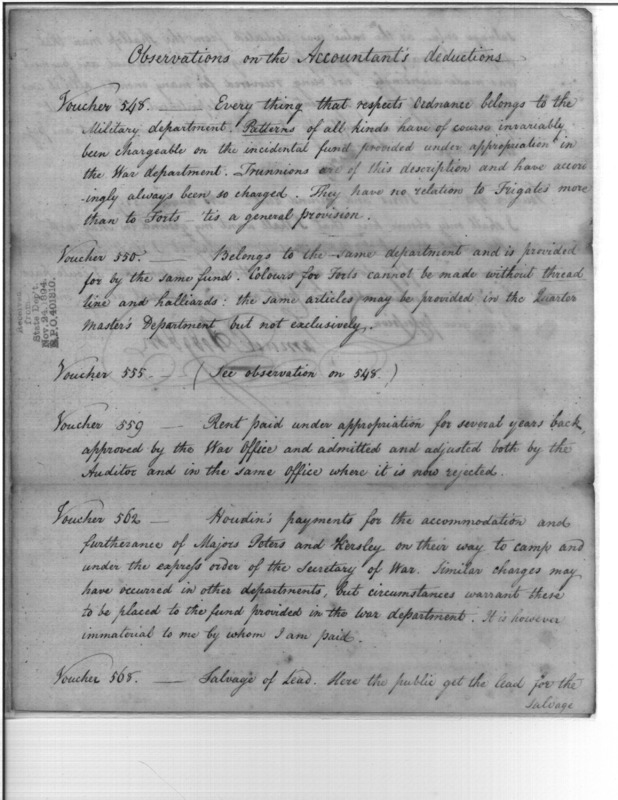 Observations on the Accountant's deductions
Voucher 548. — Every thing that respects Ordnance belongs to the
Military department. Patterns of all kinds have of course invariably
been chargeable on the incidental fund provided under appropriation in
the War department. Trunnions are of this description and have accor
-ingly always been so charged. They have no relation to Frigates more
than to Forts — tis a general provision.
Voucher 550. — Belongs to the same department and is provided
for by the same fund. Colours for Forts cannot be made without thread
line and halliards: the same articles may be provided in the Quarter
Master's Department but not exclusively.
Voucher 555. — (See observation on 548.)
Voucher 559 — Rent paid under appropriation for several years back,
approved by the War Office and admitted and adjusted both by the
Auditor and in the same Office where it is now rejected.
Voucher 562 — Houdin's payments for the accommodation and
furtherance of Majors Peters and Kersley on their way to camp and
under the express order of the Secretary of War. Similar charges may
have occurred in other departments, but circumstances warrant these
to be placed to the fund provided in the war department. It is however
immaterial to me by whom I am paid.
Voucher 568. — Salvage of Lead. Here the public get the lead for the
salvage
from
State Dep't,
Nov. 24, 1894,
R.P.O. 401810.